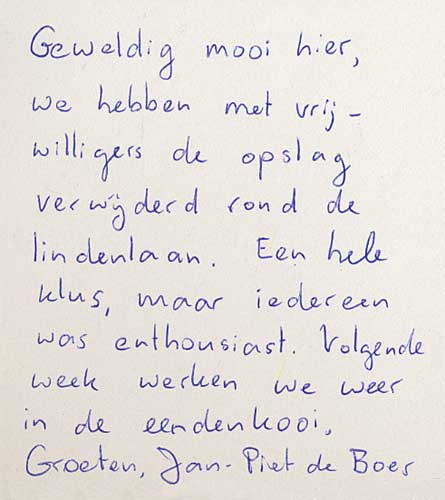 Geweldig mooi hier,
we hebben met vrij-
willigers de opslag
verwijderd rond de
lindenlaan. Een hele
klus, maar iedereen
was enthousiast. Volgende
week werken we weer
in de eendenkooi.
Groeten, Jan-Piet de Boer